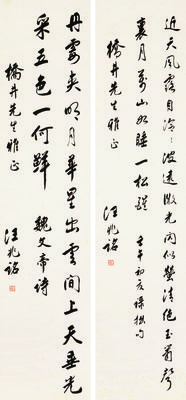 近天風露自泠〻波遠微光閃似螢清絕玉簫聲
裏月萬山如睡一松醒 壬午初夏錄拙句
橋井先生雅正 汪兆銘
丹霞夾明月華星出雲間上天垂光
采五色一何鮮 魏文帝詩
橋井先生雅正 汪兆銘